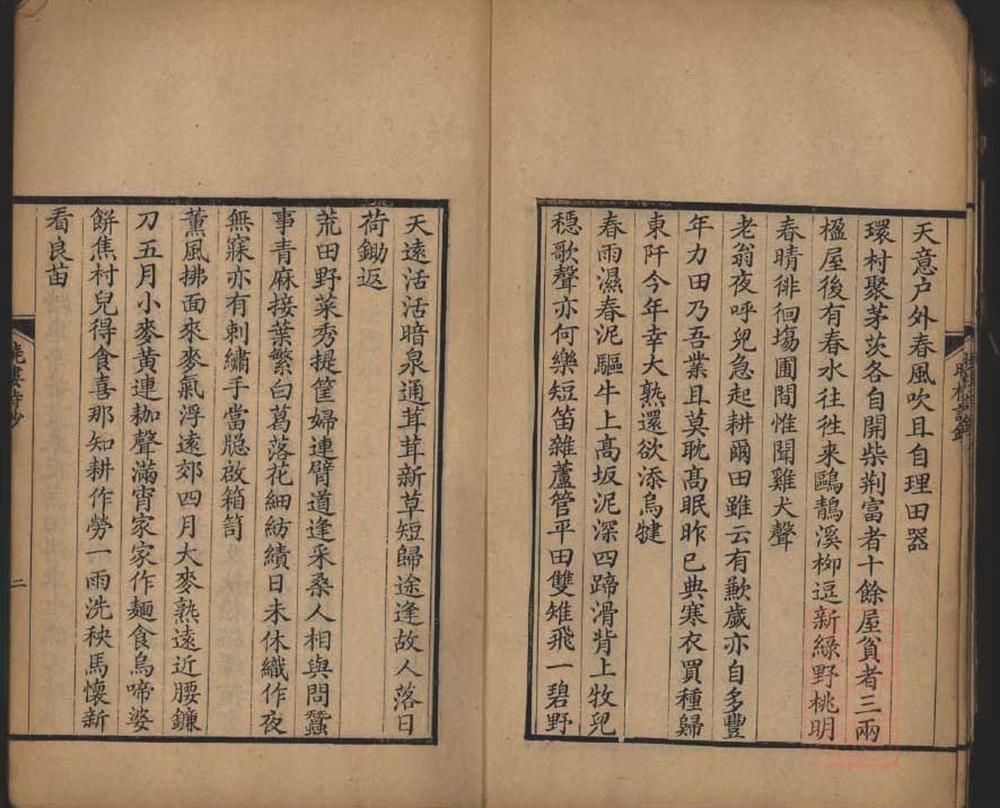 天意户外春風吹且自理田器
環村聚茅茨各自開柴荆富者十餘屋貧者三兩
楹屋後有春水往往來鷗鶄溪柳逗新綠野桃明
春晴徘徊塲圃間惟聞雞犬聲
老翁夜呼兒急起耕爾田雖云有歉歲亦自多豐
年力田乃吾業且莫耽髙眠昨已典寒衣買種歸
東阡今年幸大熟還欲添烏犍
春雨濕春泥驅牛上髙坂泥深四蹄滑背上牧兒
穩歌聲亦何樂短笛雜蘆管平田雙雉飛一碧野
天遠活活暗泉通茸茸新草短歸途逢故人落日
荷鋤返
荒田野菜秀提筐婦連臂道逢采桑人相與問蠶
事青麻接葉繁白葛落花細紡績日未休織作夜
無寐亦有刺繡手當牕啟箱笥
薰風拂面來麥氣浮遠郊四月大麥熟遠近腰鐮
刀五月小麥黃連耞聲滿宵家家作麵食烏啼婆
餅焦村兒得食喜那知耕作勞一雨洗秧馬懷新
看良苗
二